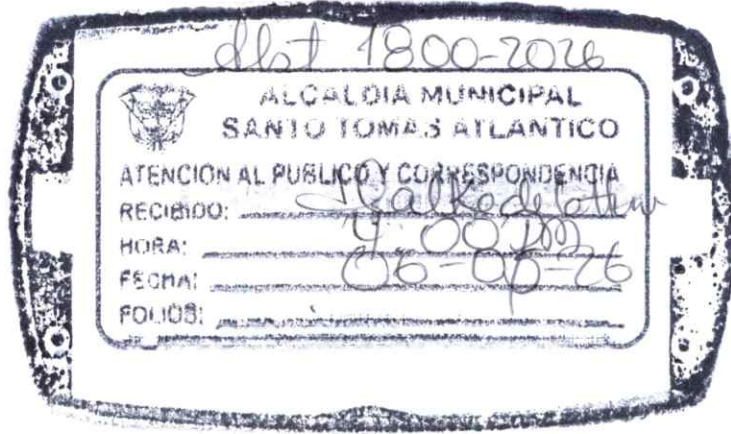 1800-2026
ALCALDIA MUNICIPAL
SANTO TOMAS ATLANTICO
ATENCION AL PUBLICO Y CORRESPONDENCIA
RECIBIDO:
HORA: 4:00 pm
FECHA: 06-06-26
FOLIOS: